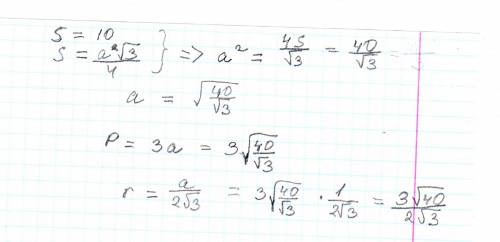 S = 10
S = a²√3/4 } => a² = 4S/√3 = 40/√3
a = √(40/√3)
P = 3a = 3√(40/√3)
r = a/2√3 = 3√(40/√3) · 1/2√3 = 3√40/2√3